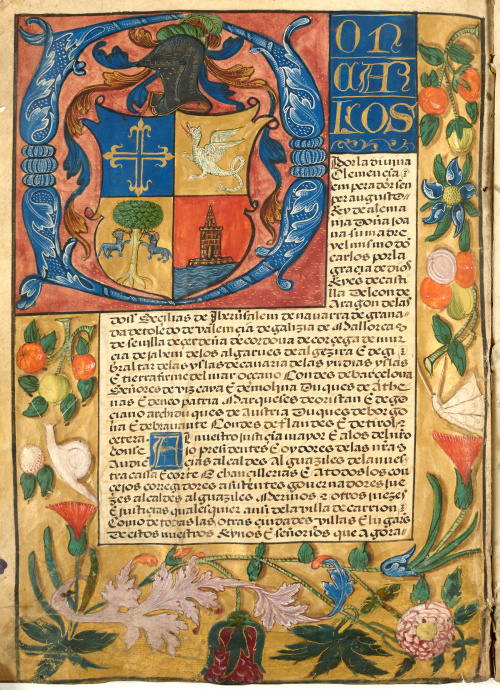 ON
CAR
LOS
Por la diuina
Clemencia E
em perador sen
per augusto
Rey de alema
nia doña joa
na su madre
y el mismo dō
carlos por la
gracia de dios
Reyes de casti
lla de leon de
Aragon de las
dos Secilias de Iherusalem de nauarra de grana
da de toledo de valencia de galizia de Mallorca
de seuilla de cerdeña de cordoua de corcega de mur
cia de jahem de los algarues de algezira E de gi
braltar de las yslas de canaria de las yndias yslas
E tierra firme del mar oceano Condes de barcelona
Señores de vizcaya E de molina Duques de Athe
nas E de neopatria Marqueses de oristan E de go
ciano archiduques de Austria Duques de borgo
ña E de brauante Condes de flandes E de tirol
cetera A l nuestro justicia mayor E a los del nro
conse jo presidentes E oydores de las nras
Audie cias alcaldes Alguaziles de la nues
tra casa E corte E chancillerias E A todos los con
cejos corregidores asistentes gouernadores jue
zes alcaldes alguaziles Merinos E otros juezes
E justicias qualesquier ansi de la villa de carrion
Como de todas las otras ciudades villas E lugares
de estos nuestros Reynos E señorios que Agora